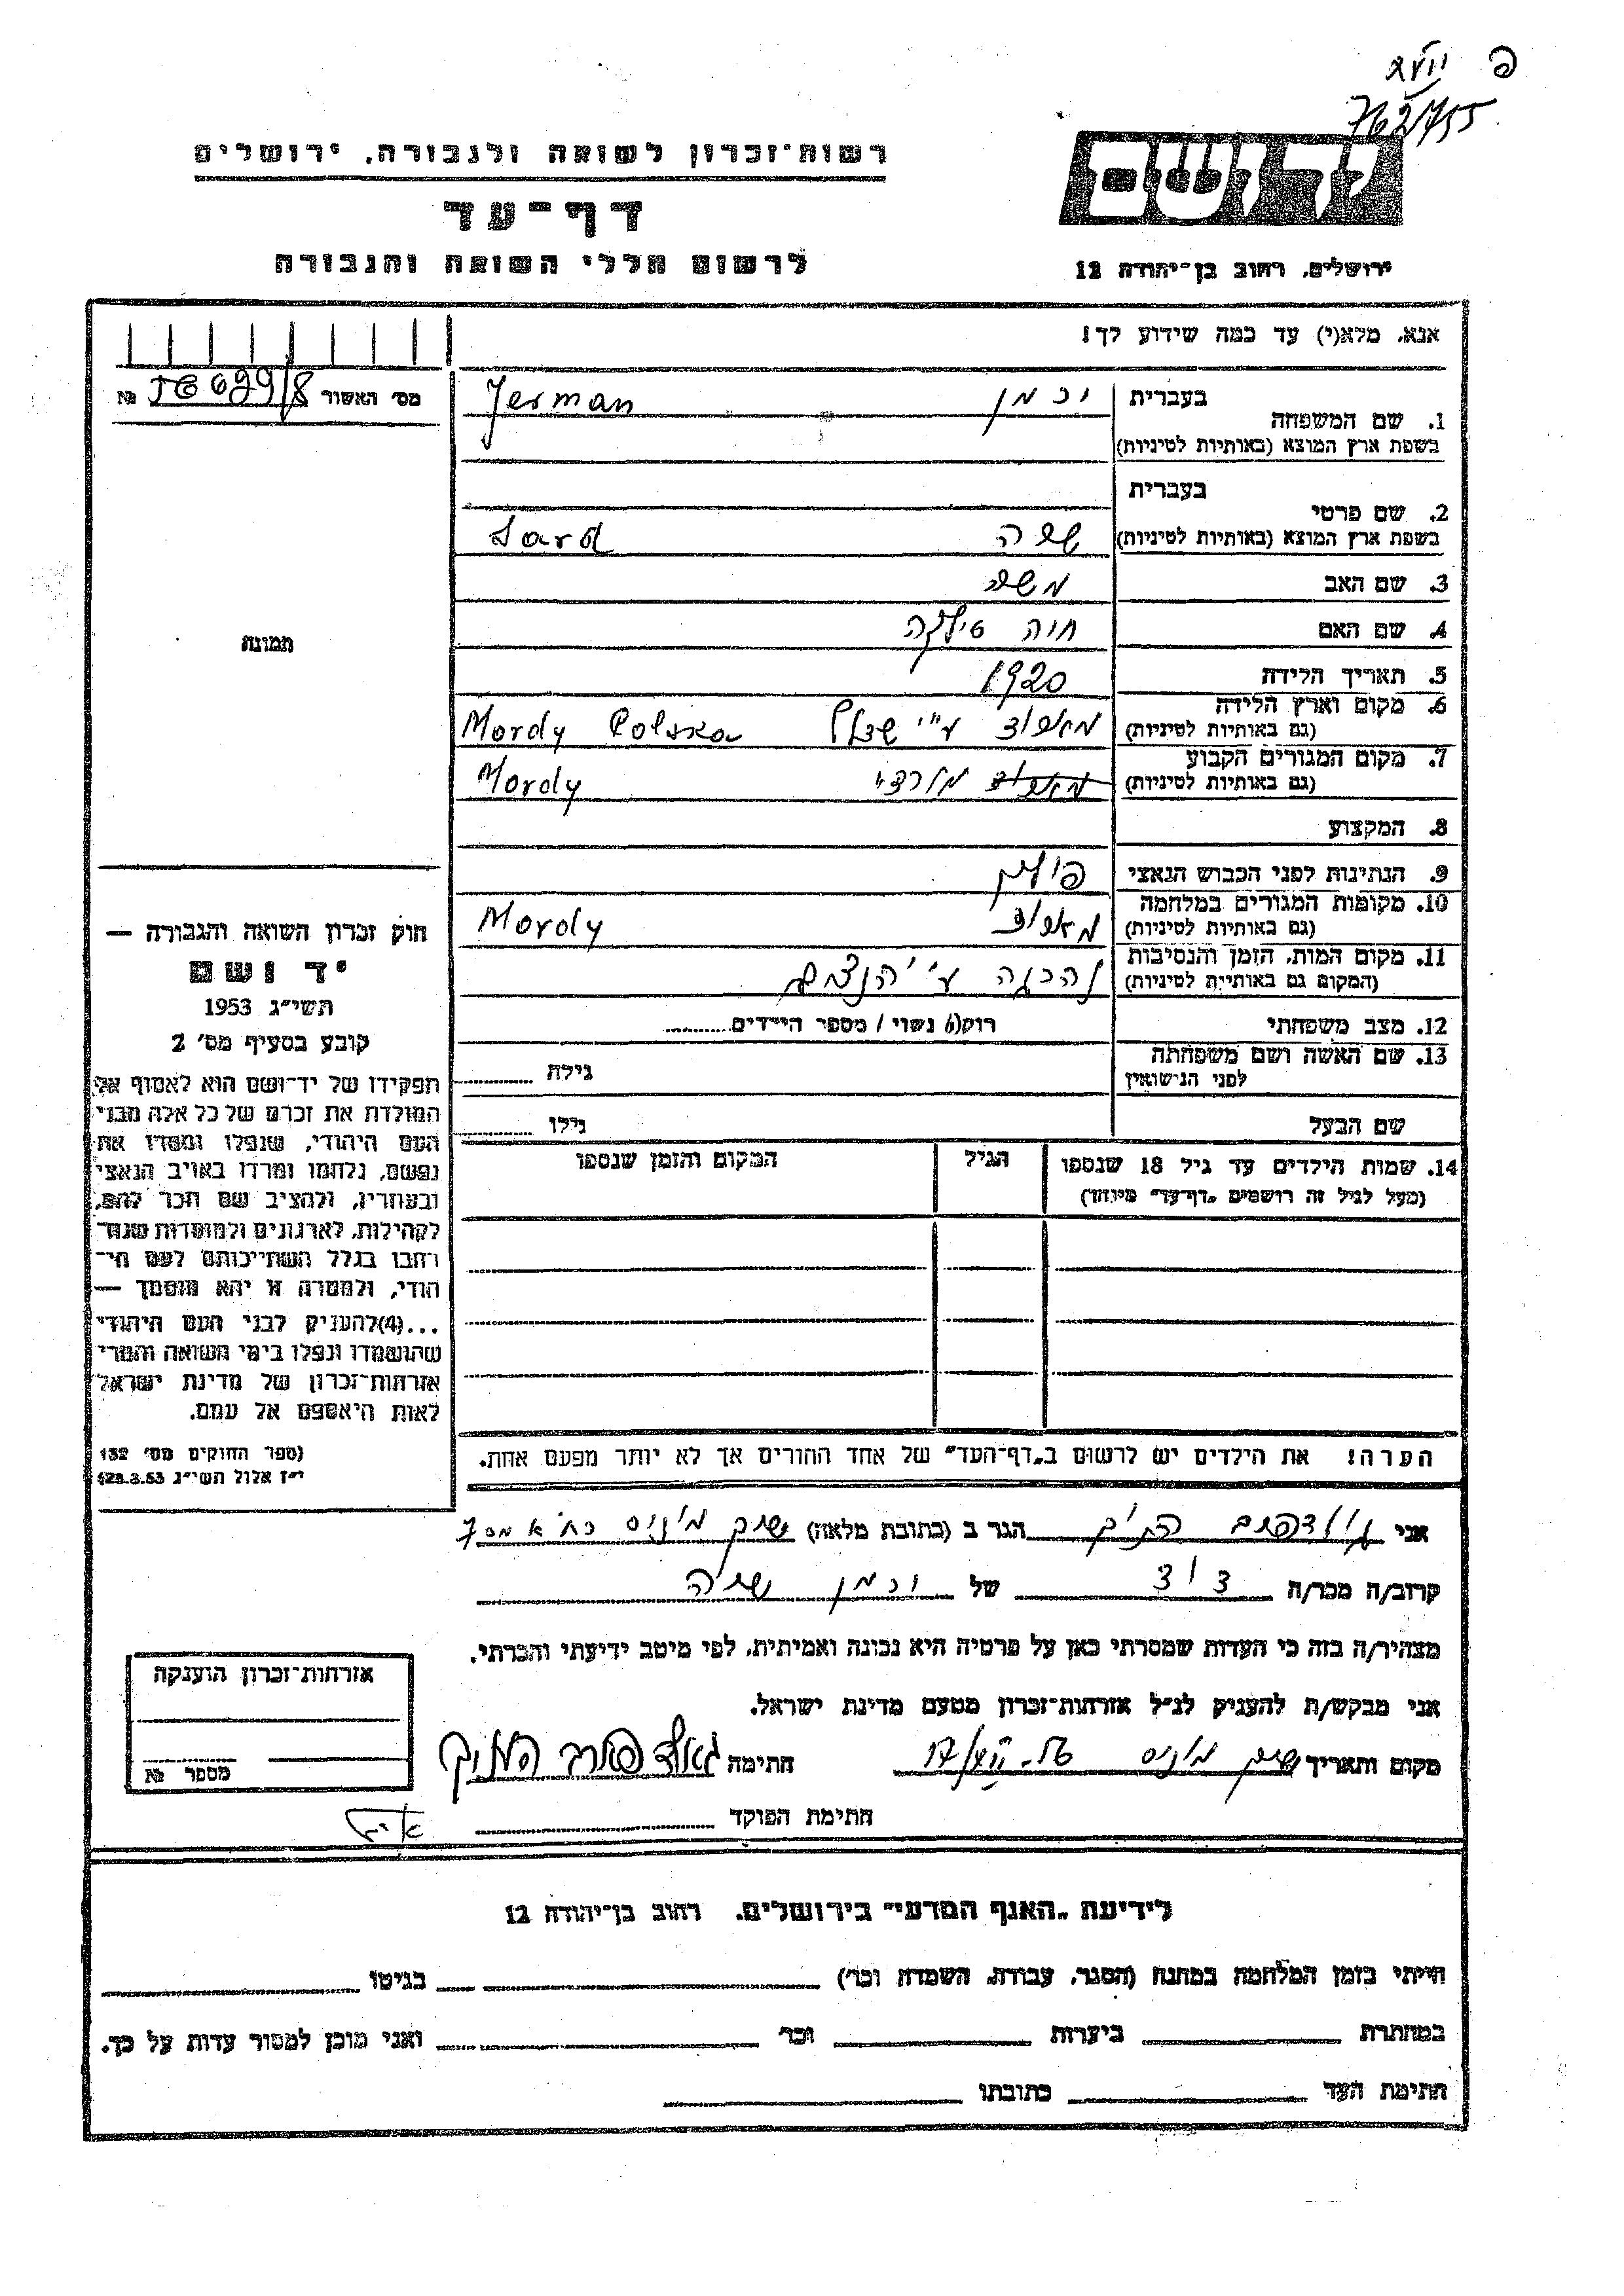 רשות־זכרון לשואה ולגבורה, ירושלים
דף־עד
לרשום חללי השואה והגבורה
ידושם
ירושלים, רחוב בן־יהודה 12
אנא, מלא(י) עד כמה שידוע לך!
מס׳ האשור №
בעברית
1. שם המשפחה
Jerman
בשפת ארץ המוצא (באותיות לטיניות)
בעברית
2. שם פרטי
שרה
בשפת ארץ המוצא (באותיות לטיניות)
3. שם האב משה
4. שם האם חוה
5. תאריך הלידה 1920
6. מקום וארץ הלידה
(גם באותיות לטיניות) ע"י Mordy Polska
7. מקום המגורים הקבוע
(גם באותיות לטיניות) Mordy
8. המקצוע
9. הנתינות לפני הכבוש הנאצי פולין
10. מקומות המגורים במלחמה
(גם באותיות לטיניות) Mordy
11. מקום המות, הזמן והנסיבות
(המקום גם באותיות לטיניות) נהרגה ע"י הנצים
12. מצב משפחתי רוק(ה) נשוי / מספר הילדים
13. שם האשה ושם משפחתה
לפני הנישואין גילה
שם הבעל גילו
14. שמות הילדים עד גיל 18 שנספו
(מעל לגיל זה רושמים „דף־עד" מיוחד)
הגיל
המקום והזמן שנספו
הערה! את הילדים יש לרשום ב„דף־העד" של אחד ההורים אך לא יותר מפעם אחת.
תמונה
חוק זכרון השואה והגבורה —
יד ושם
תשי"ג 1953
קובע בסעיף מס׳ 2
תפקידו של יד־ושם הוא לאסוף אל
המולדת את זכרם של כל אלה מבני
העם היהודי, שנפלו ומסרו את
נפשם, נלחמו ומרדו באויב הנאצי
ובעוזריו, ולהציב שם וזכר להם,
לקהילות, לארגונים ולמוסדות שנח־
רבו בגלל השתייכותם לעם הי־
הודי, ולמטרה זו יהא מוסמך —
...(4)להעניק לבני העם היהודי
שהושמדו ונפלו בימי השואה והמרי
אזרחות־זכרון של מדינת ישראל
לאות היאספם אל עמם.
(ספר החוקים מס׳ 132
י"ז אלול תשי"ג 28.8.53)
אני הגר ב (כתובת מלאה)
קרוב/ה מכר/ה דוד של שרה
מצהיר/ה בזה כי העדות שמסרתי כאן על פרטיה היא נכונה ואמיתית, לפי מיטב ידיעתי והכרתי.
אני מבקש/ת להעניק לנ"ל אזרחות־זכרון מטעם מדינת ישראל.
מקום ותאריך חתימה
חתימת הפוקד
אזרחות־זכרון הוענקה
מספר №
לידיעת „האגף המדעי" בירושלים, רחוב בן־יהודה 12
הייתי בזמן המלחמה במחנה (הסגר, עבודה, השמדה וכו׳) בגיטו
במחתרת ביערות וכו׳ ואני מוכן למסור עדות על כך.
חתימת העד כתובתו